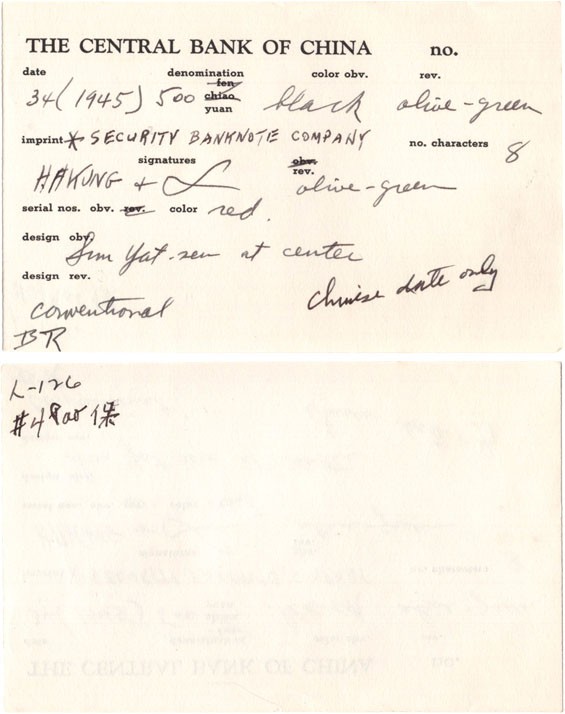 THE CENTRAL BANK OF CHINA no.
date denomination color obv. rev.
fen
34 (1945) 500 chiao black olive-green
yuan
imprint * SECURITY BANKNOTE COMPANY no. characters 8
signatures obv.
HAKUNG + rev.
olive-green
serial nos. obv. rev. color red.
design obv.
Sun Yat-sen at center
design rev.
Chinese date only
conventional
BR
L-126